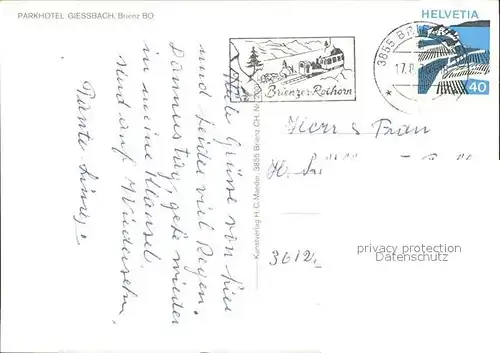 PARKHOTEL GIESSBACH, Brienz BO
HELVETIA
40
3855 BRIE
17.8.
Brienzer-Rothorn
Kunstverlag H.C. Maeder, 3855 Brienz CH. Nr.
Viele Grüsse von hier
und leider viel Regen.
Donnerstag, gehe wieder
in meine Klausel
und auf Wiedersehn,
Tante
Herr & Frau
H.
3612
privacy protection
Datenschutz